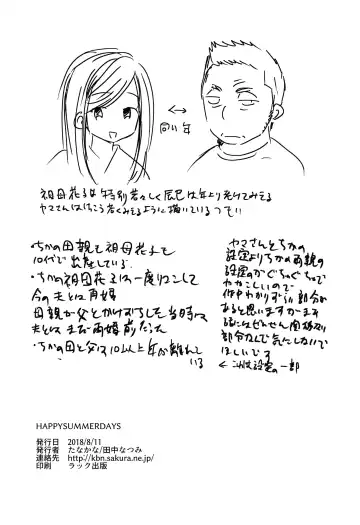 同い年
祖母花子は特別若々しく辰巳は年より老けてみえる
ヤマさんはけっこう若くみえるように描いているつもり
・ちかの母親も祖母花子も
10代で出産している。
・ちかの祖母花子は一度りこんして
今の夫とは再婚
母親が父とかけおちした当時は
夫とはまだ再婚前だった
・ちかの母と父は10以上年が離れて
いる
ヤマさんとちかの
設定よりちかの両親の
設定のがぐちゃぐちゃで
ややこしいので
作中わかりずらい部分が
あると思いますがまんま
ぜんぜん関係ない
部分なんで気にしないで
ほしいです
の一部
HAPPYSUMMERDAYS
発行日 2018/8/11
発行者 たなかな/田中なつみ
連絡先 http://kbn.sakura.ne.jp/
印刷 ラック出版